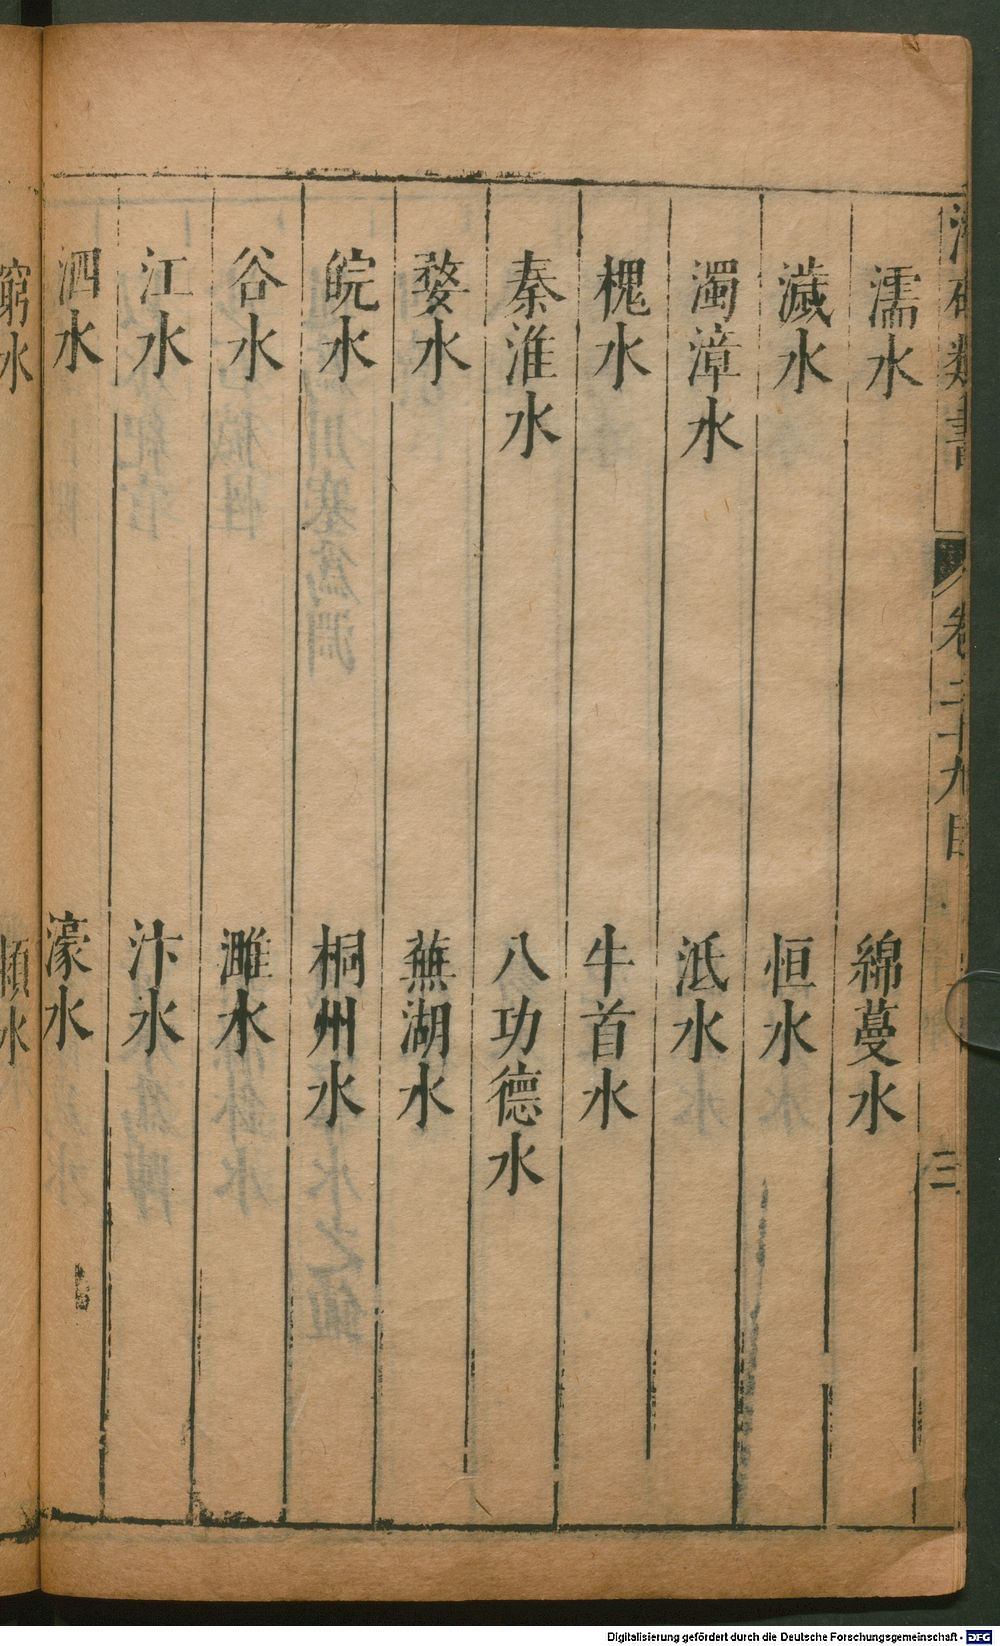 卷二十九目
三
濡水
綿蔓水
濊水
恒水
濁漳水
泜水
槐水
牛首水
秦淮水
八功德水
婺水
蕪湖水
皖水
桐州水
谷水
濉水
江水
汴水
泗水
濠水
窮水
Digitalisierung gefördert durch die Deutsche Forschungsgemeinschaft - DFG